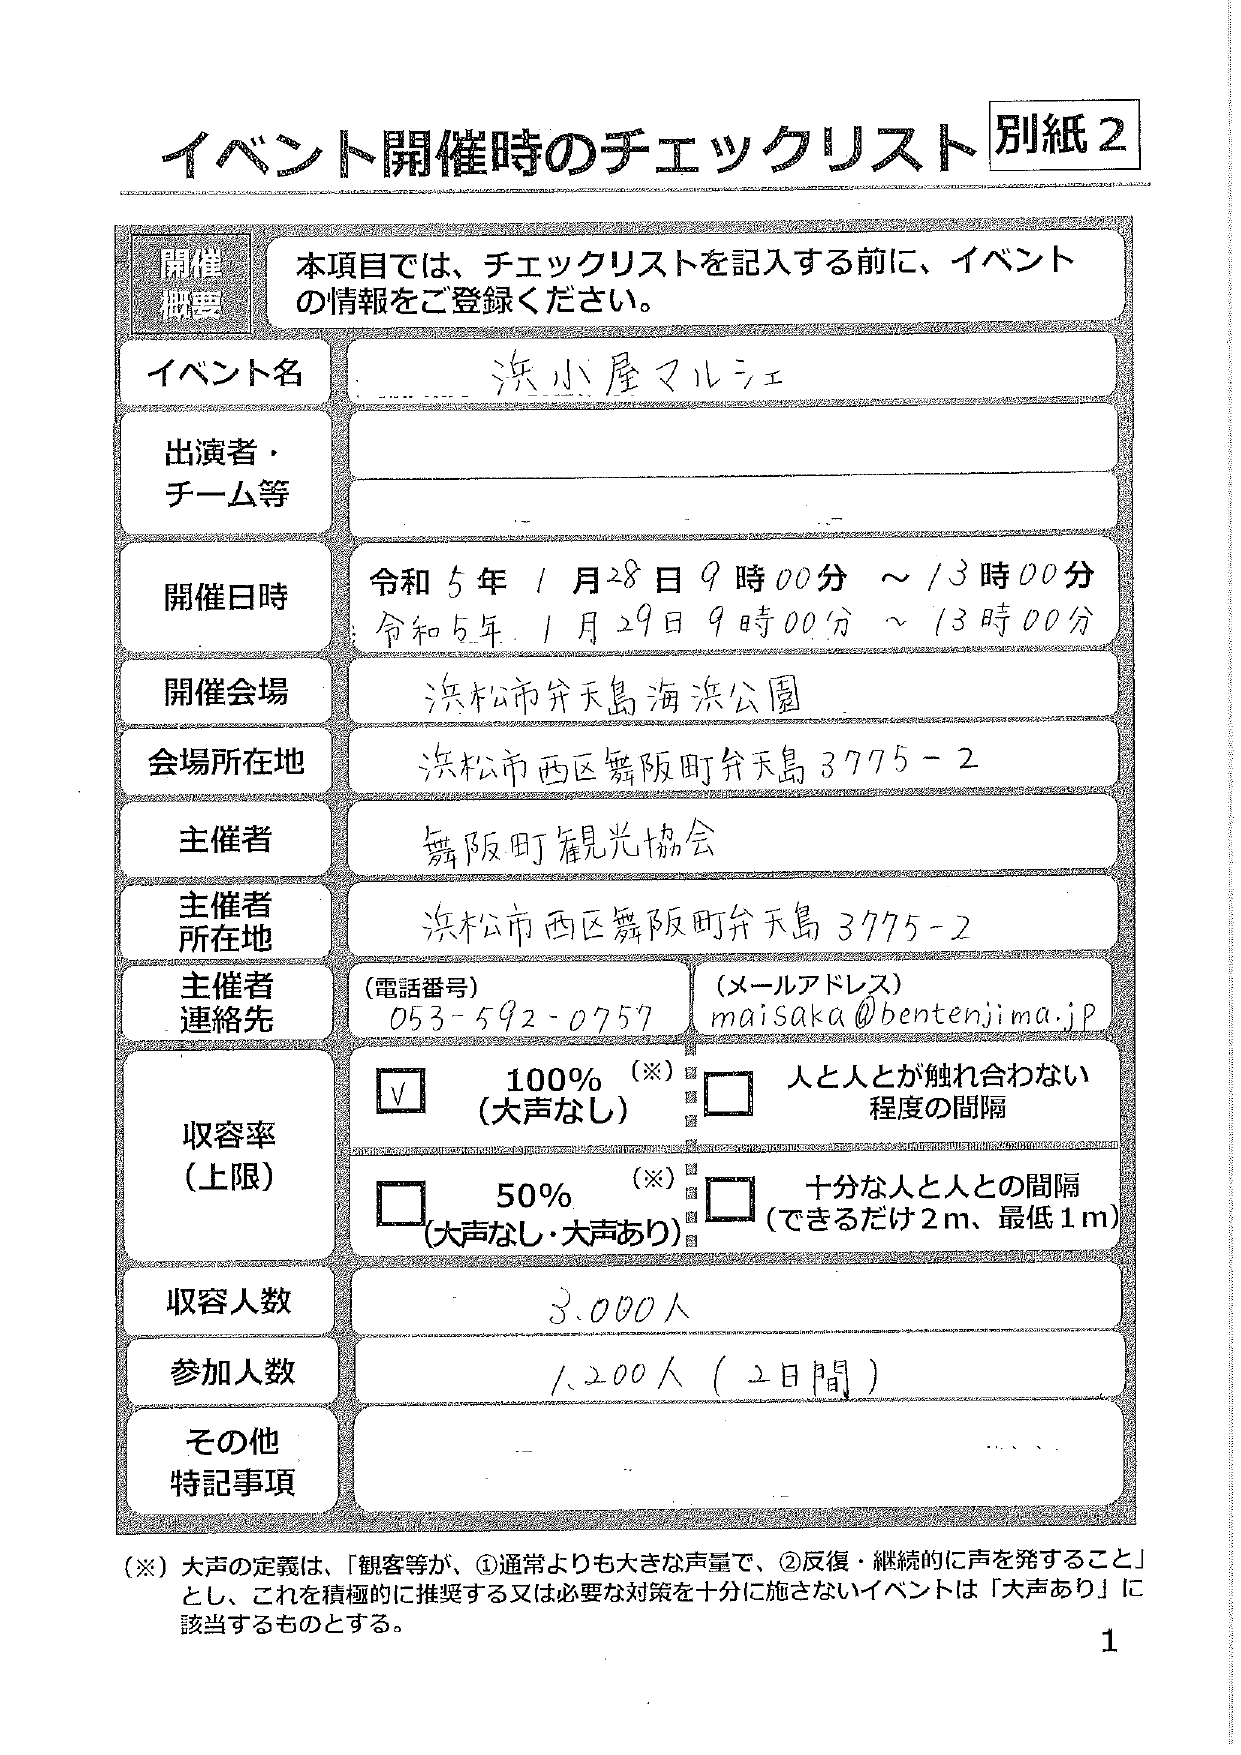 イベント開催時のチェックリスト 別紙2
開催
概要
本項目では、チェックリストを記入する前に、イベント
の情報をご登録ください。
イベント名 浜小屋マルシェ
出演者・
チーム等
開催日時
令和5年1月28日9時00分 ～13時00分
令和5年1月29日9時00分 ～13時00分
開催会場 浜松市弁天島海浜公園
会場所在地 浜松市西区舞阪町弁天島3775-2
主催者 舞阪町観光協会
主催者
所在地
浜松市西区舞阪町弁天島3775-2
主催者
連絡先
(電話番号)
053-592-0757
(メールアドレス)
maisaka@bentenjima.jp
収容率
(上限)
✓ 100% (※)
(大声なし)
人と人とが触れ合わない
程度の間隔
50% (※)
(大声なし・大声あり)
十分な人と人との間隔
(できるだけ2m、最低1m)
収容人数 3.000人
参加人数 1、200人(2日間)
その他
特記事項
(※) 大声の定義は、「観客等が、①通常よりも大きな声量で、②反復・継続的に声を発すること」
とし、これを積極的に推奨する又は必要な対策を十分に施さないイベントは「大声あり」に
該当するものとする。
1